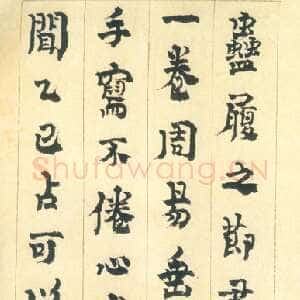 蠱履之節君
一卷周易垂
手寫不倦心
聞乙巳占可以
Shufawang.CN